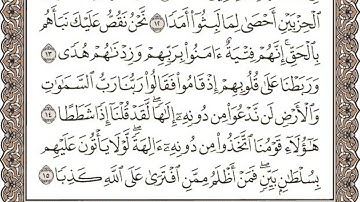 ٱلْحِزْبَيْنِ أَحْصَىٰ لِمَا لَبِثُوٓا۟ أَمَدًا ١٢ نَّحْنُ نَقُصُّ عَلَيْكَ نَبَأَهُم
بِٱلْحَقِّ ۚ إِنَّهُمْ فِتْيَةٌ ءَامَنُوا۟ بِرَبِّهِمْ وَزِدْنَٰهُمْ هُدًى ١٣
وَرَبَطْنَا عَلَىٰ قُلُوبِهِمْ إِذْ قَامُوا۟ فَقَالُوا۟ رَبُّنَا رَبُّ ٱلسَّمَٰوَٰتِ
وَٱلْأَرْضِ لَن نَّدْعُوَا۟ مِن دُونِهِۦٓ إِلَٰهًا ۖ لَّقَدْ قُلْنَآ إِذًا شَطَطًا ١٤
هَٰٓؤُلَآءِ قَوْمُنَا ٱتَّخَذُوا۟ مِن دُونِهِۦٓ ءَالِهَةً ۖ لَّوْلَا يَأْتُونَ عَلَيْهِم
بِسُلْطَٰنٍۭ بَيِّنٍ ۖ فَمَنْ أَظْلَمُ مِمَّنِ ٱفْتَرَىٰ عَلَى ٱللَّهِ كَذِبًا ١٥